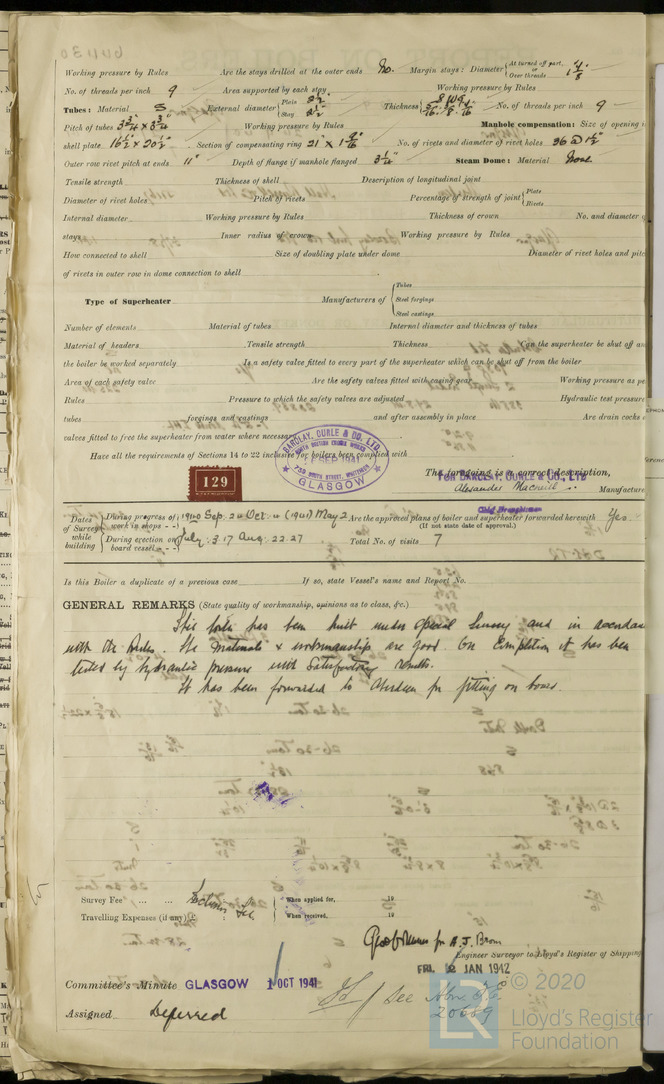 Working pressure by Rules Are the stays drilled at the outer ends No. Margin stays: Diameter { At turned off part, or Over threads
No. of threads per inch 9 Area supported by each stay Working pressure by Rules
Tubes: Material S External diameter { Plain 2½" Stay 2½" Thickness { 8 W.G. 5/16 3/8 No. of threads per inch 9
Pitch of tubes 3¾" x 3¾" Working pressure by Rules Manhole compensation: Size of opening i
shell plate 16½" x 20½" Section of compensating ring 21 x 1 No. of rivets and diameter of rivet holes 36 @
Outer row rivet pitch at ends 11" Depth of flange if manhole flanged 3¼" Steam Dome: Material None
Tensile strength Thickness of shell Description of longitudinal joint
Diameter of rivet holes Pitch of rivets Percentage of strength of joint { Plate Rivets
Internal diameter Working pressure by Rules Thickness of crown No. and diameter o
stays Inner radius of crown Working pressure by Rules
How connected to shell Size of doubling plate under dome Diameter of rivet holes and pitc
of rivets in outer row in dome connection to shell
Type of Superheater Manufacturers of { Tubes Steel forgings Steel castings
Number of elements Material of tubes Internal diameter and thickness of tubes
Material of headers Tensile strength Thickness Can the superheater be shut off an
the boiler be worked separately Is a safety valve fitted to every part of the superheater which can be shut off from the boiler
Area of each safety valve Are the safety valves fitted with easing gear Working pressure as pe
Rules Pressure to which the safety valves are adjusted Hydraulic test pressure
tubes forgings and castings and after assembly in place Are drain cocks o
valves fitted to free the superheater from water where necessary
Have all the requirements of Sections 14 to 22 inclusive for boilers been complied with
BARCLAY, CURLE & CO. LTD.
NORTH BRITISH ENGINE WORKS
SEP 1941
739 SOUTH STREET, WHITEINCH
GLASGOW
129
The foregoing is a correct description,
FOR BARCLAY, CURLE & CO., LTD
Alexander Macneill Manufacture
Chief Draughtsman
Dates of Survey while building { During progress of work in shops - - } 1940 Sep. 24 Oct. 4 (1941) May 2 Are the approved plans of boiler and superheater forwarded herewith Yes
(If not state date of approval.)
During erection on board vessel - - - } July 3.17 Aug. 22.27 Total No. of visits 7
Is this Boiler a duplicate of a previous case If so, state Vessel's name and Report No.
GENERAL REMARKS (State quality of workmanship, opinions as to class, &c.)
This boiler has been built under Special Survey and in accordan
with the Rules. The materials & workmanship are good. On Completion it has been
tested by hydraulic pressure with Satisfactory results.
It has been forwarded to Aberdeen for fitting on board.
Survey Fee ... ... £ { When applied for, 19
Travelling Expenses (if any) £ : : { When received, 19
for A.J. Brown
Engineer Surveyor to Lloyd's Register of Shipping
FRI. 2 JAN 1942
Committee's Minute GLASGOW 1 OCT 1941
Assigned Deferred See Abn. F.E. 20689
© 2020
LR
Lloyd's Register
Foundation